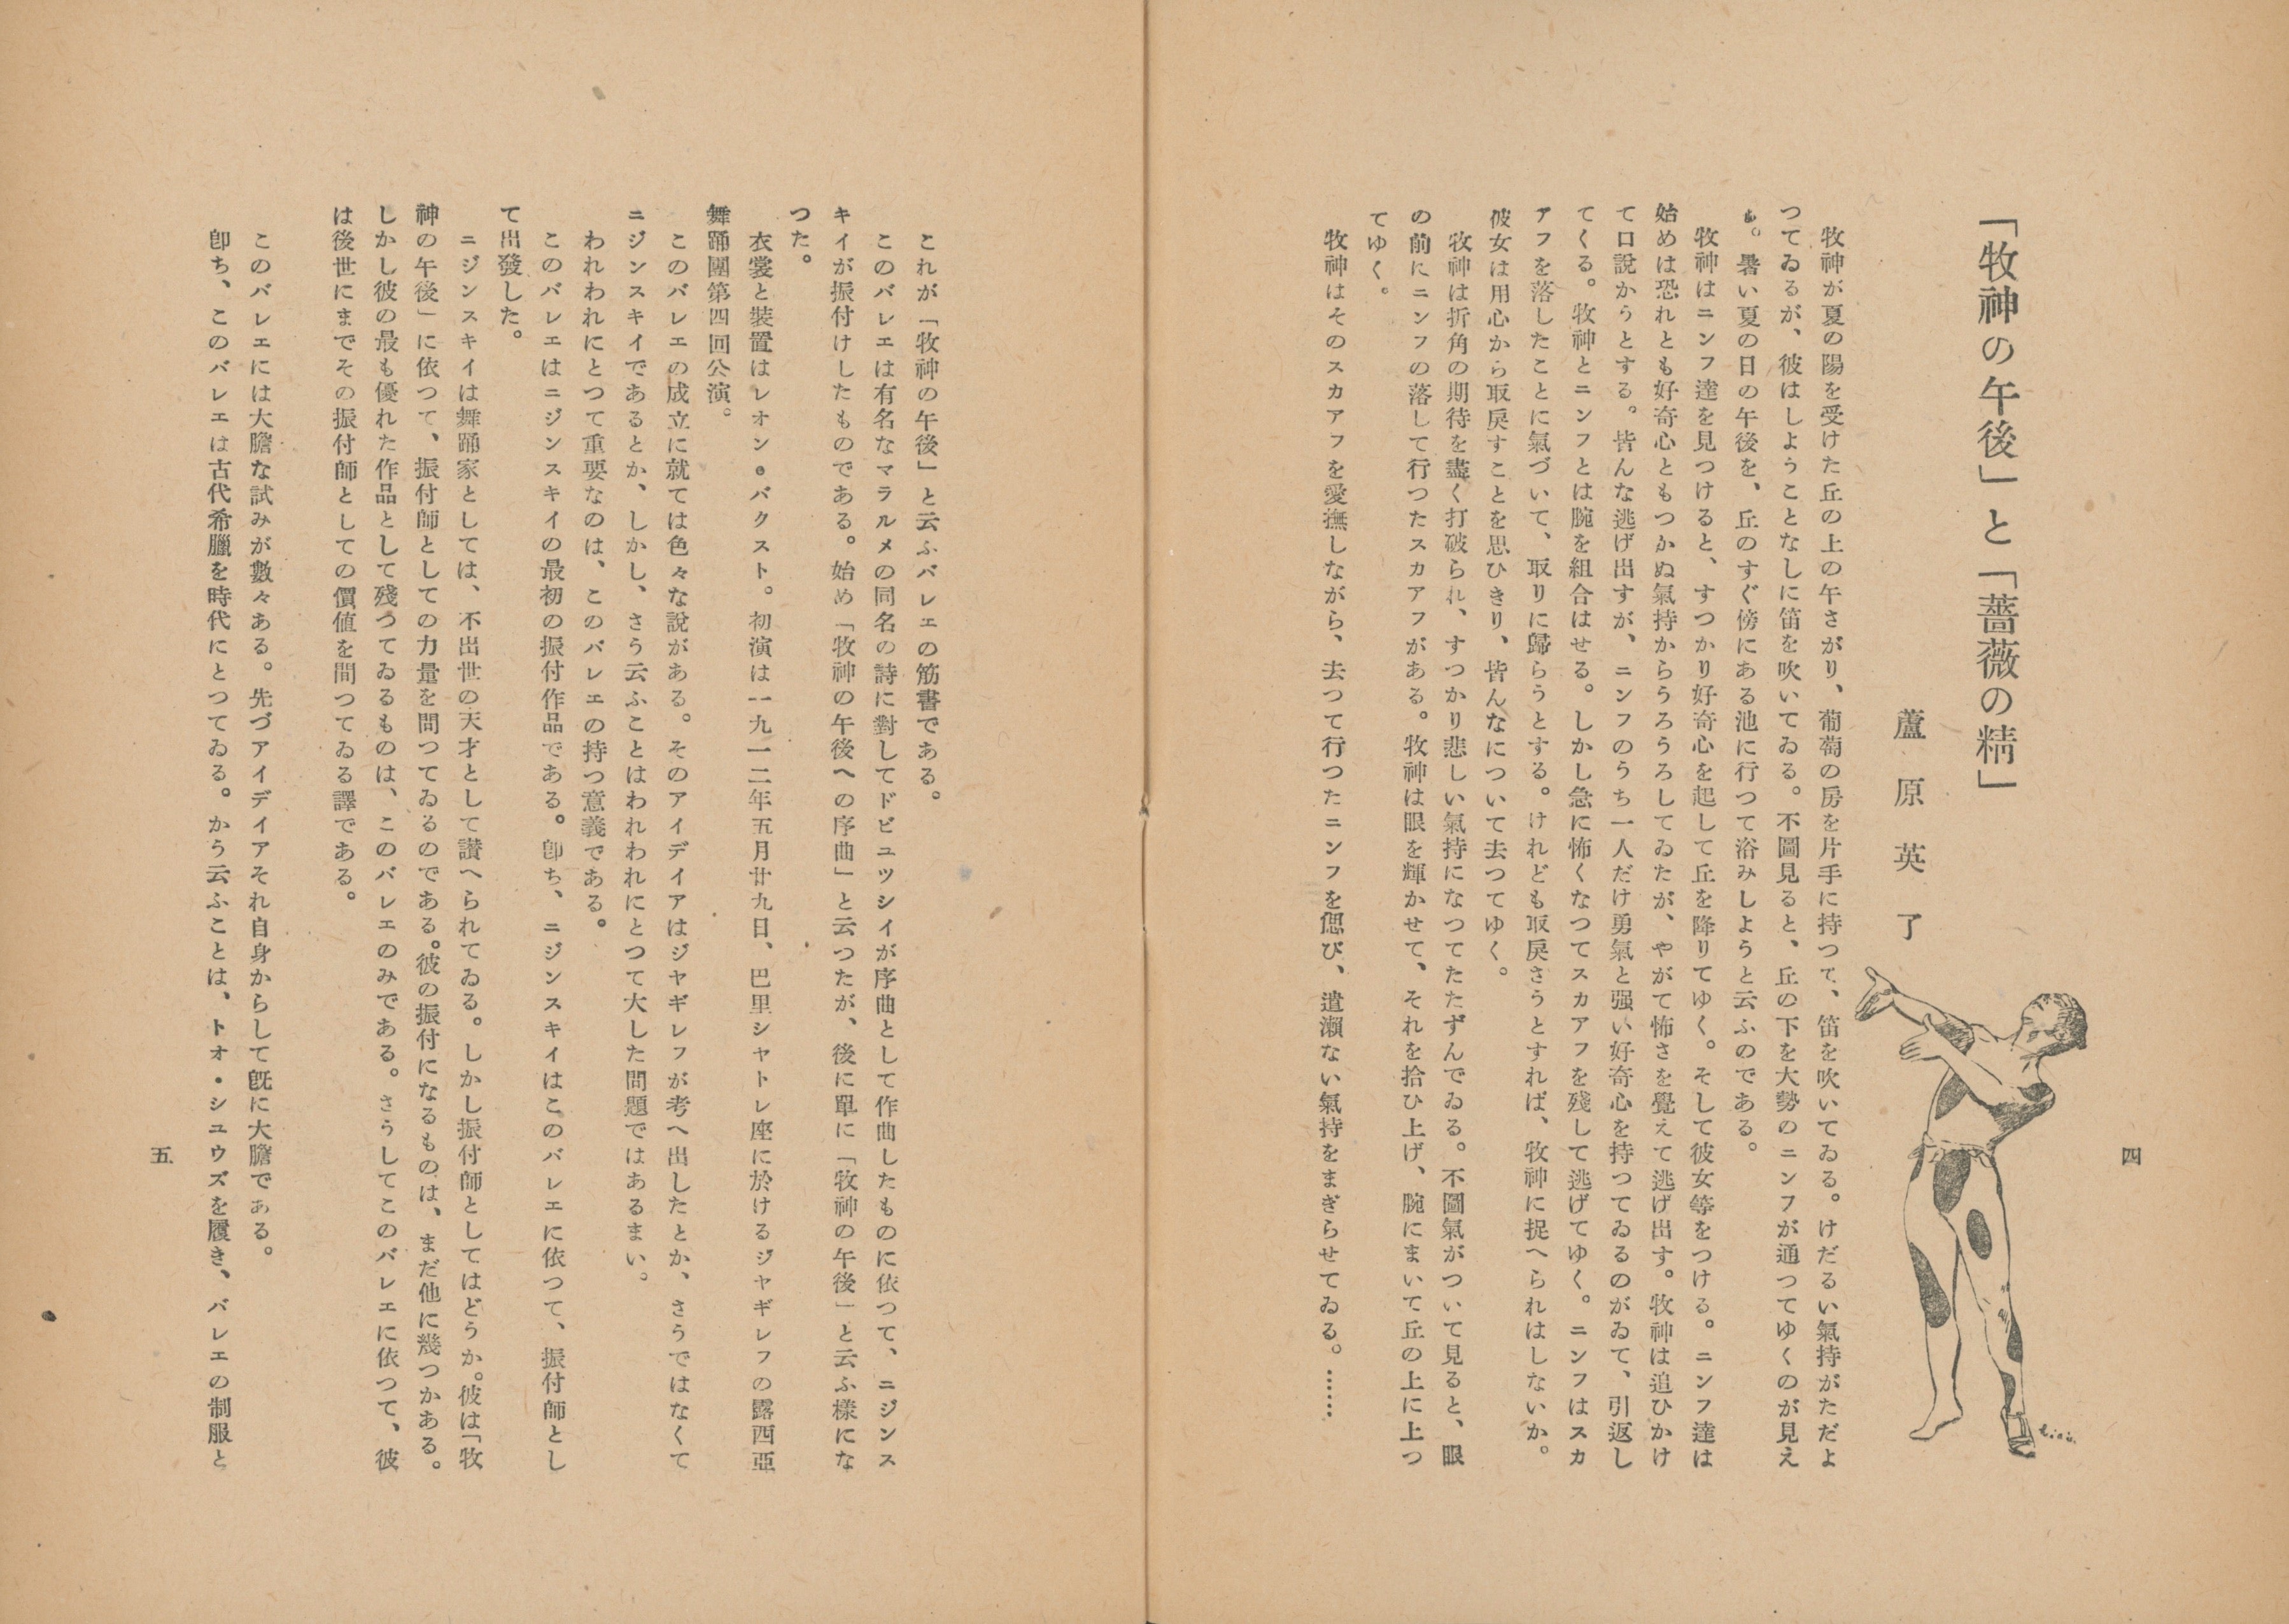 四
「牧神の午後」と「薔薇の精」
蘆原英了
牧神が夏の陽を受けた丘の上の午さがり、葡萄の房を片手に持つて、笛を吹いてゐる。けだるい氣持がただよ
つてゐるが、彼はしようことなしに笛を吹いてゐる。不圖見ると、丘の下を大勢のニンフが通つてゆくのが見え
る。暑い夏の日の午後を、丘のすぐ傍にある池に行つて浴みしようと云ふのである。
牧神はニンフ達を見つけると、すつかり好奇心を起して丘を降りてゆく。そして彼女等をつける。ニンフ達は
始めは恐れとも好奇心ともつかぬ氣持からうろうろしてゐたが、やがて怖さを覺えて逃げ出す。牧神は追ひかけ
て口說かうとする。皆んな逃げ出すが、ニンフのうち一人だけ勇氣と强い好奇心を持つてゐるのがゐて、引返し
てくる。牧神とニンフとは腕を組合はせる。しかし急に怖くなつてスカアフを殘して逃げてゆく。ニンフはスカ
アフを落したことに氣づいて、取りに歸らうとする。けれども取戾さうとすれば、牧神に捉へられはしないか。
彼女は用心から取戾すことを思ひきり、皆んなについて去つてゆく。
牧神は折角の期待を盡く打破られ、すつかり悲しい氣持になつてたたずんでゐる。不圖氣がついて見ると、眼
の前にニンフの落して行つたスカアフがある。牧神は眼を輝かせて、それを拾ひ上げ、腕にまいて丘の上に上つ
てゆく。
牧神はそのスカアフを愛撫しながら、去つて行つたニンフを偲び、遣瀨ない氣持をまぎらせてゐる。……
これが「牧神の午後」と云ふバレエの筋書である。
このバレエは有名なマラルメの同名の詩に對してドビユツシイが序曲として作曲したものに依つて、ニジンス
キイが振付けしたものである。始め「牧神の午後への序曲」と云つたが、後に單に「牧神の午後」と云ふ樣にな
つた。
衣裳と裝置はレオン・バクスト。初演は一九一二年五月廿九日、巴里シヤトレ座に於けるジヤギレフの露西亞
舞踊團第四回公演。
このバレエの成立に就ては色々な說がある。そのアイデイアはジヤギレフが考へ出したとか、さうではなくて
ニジンスキイであるとか、しかし、さう云ふことはわれわれにとつて大した問題ではあるまい。
われわれにとつて重要なのは、このバレエの持つ意義である。
このバレエはニジンスキイの最初の振付作品である。卽ち、ニジンスキイはこのバレエに依つて、振付師とし
て出發した。
ニジンスキイは舞踊家としては、不出世の天才として讃へられてゐる。しかし振付師としてはどうか。彼は「牧
神の午後」に依つて、振付師としての力量を問つてゐるのである。彼の振付になるものは、まだ他に幾つかある。
しかし彼の最も優れた作品として殘つてゐるものは、このバレエのみである。さうしてこのバレエに依つて、彼
は後世にまでその振付師としての價値を問つてゐる譯である。
このバレエには大膽な試みが數々ある。先づアイデイアそれ自身からして旣に大膽である。
卽ち、このバレエは古代希臘を時代にとつてゐる。かう云ふことは、トオ・シユウズを履き、バレエの制服と
五